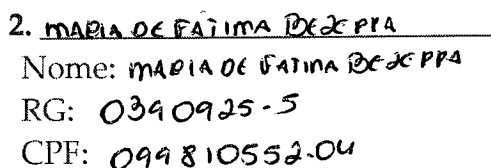 2. MARIA DE FATIMA BEZERRA
Nome: MARIA DE FATIMA BEZERRA
RG: 0390925-5
CPF: 099810552-04